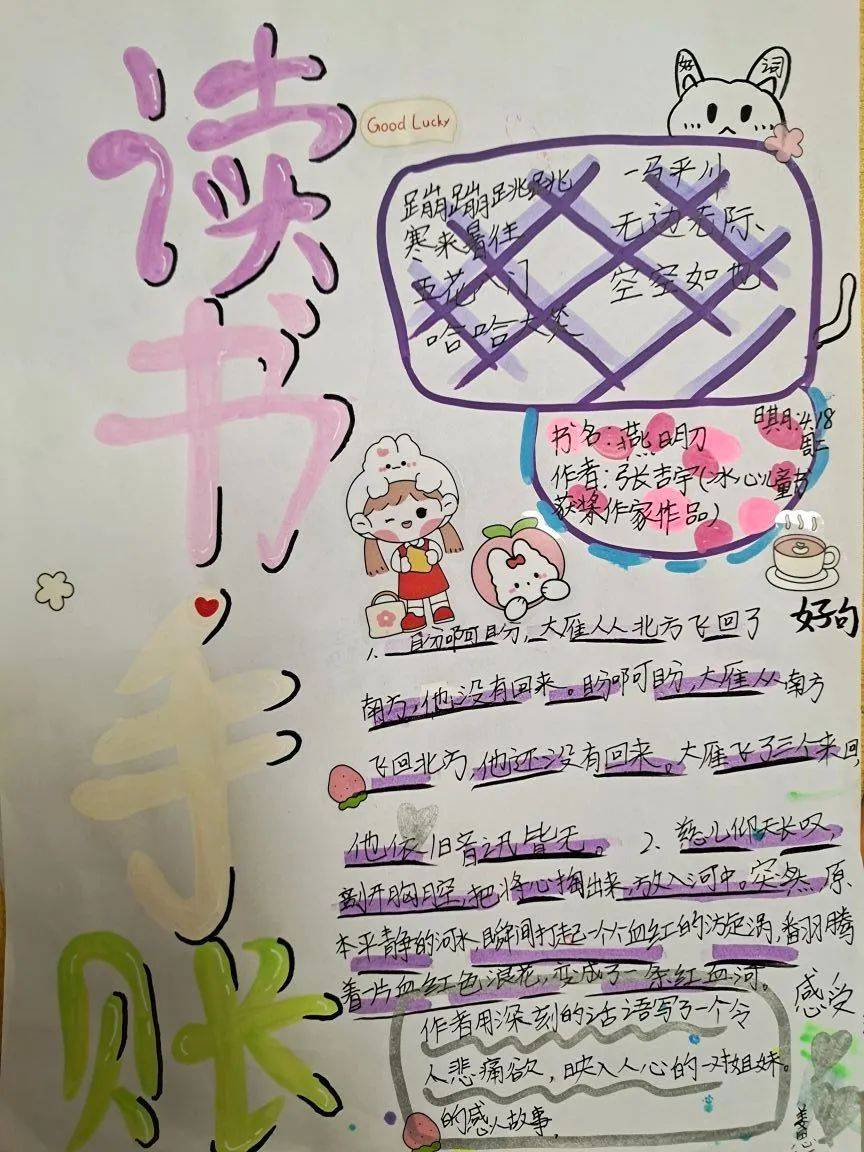 读书手账
Good Lucky
好词
蹦蹦跳跳
一马平川
寒来暑往
无边无际、
五花八门
空空如也
哈哈大笑
书名:燕月明刀
日期:4.18
周二
作者:张吉宇(冰心儿童书
获奖作家作品)
好句
1、盼啊盼,大雁从北方飞回了
南方,他没有回来。盼啊盼,大雁从南方
飞回北方,他还没有回来。大雁飞了三个来回
他依旧音讯皆无。 2、慈儿仰天长叹,
剖开胸腔,把将心掏出来,放入河中。突然原
本平静的河水瞬间打起一个个血红的漩涡,翻腾
着一片血红色浪花,变成了一条红血河。
感受
作者用深刻的话语写了一个令
人悲痛欲,映入人心的一对姐妹。
的感人故事.